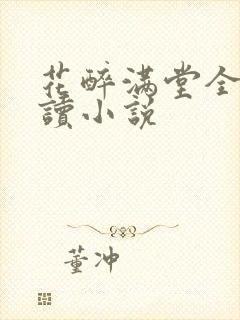 花醉满堂全
讀小说
董冲